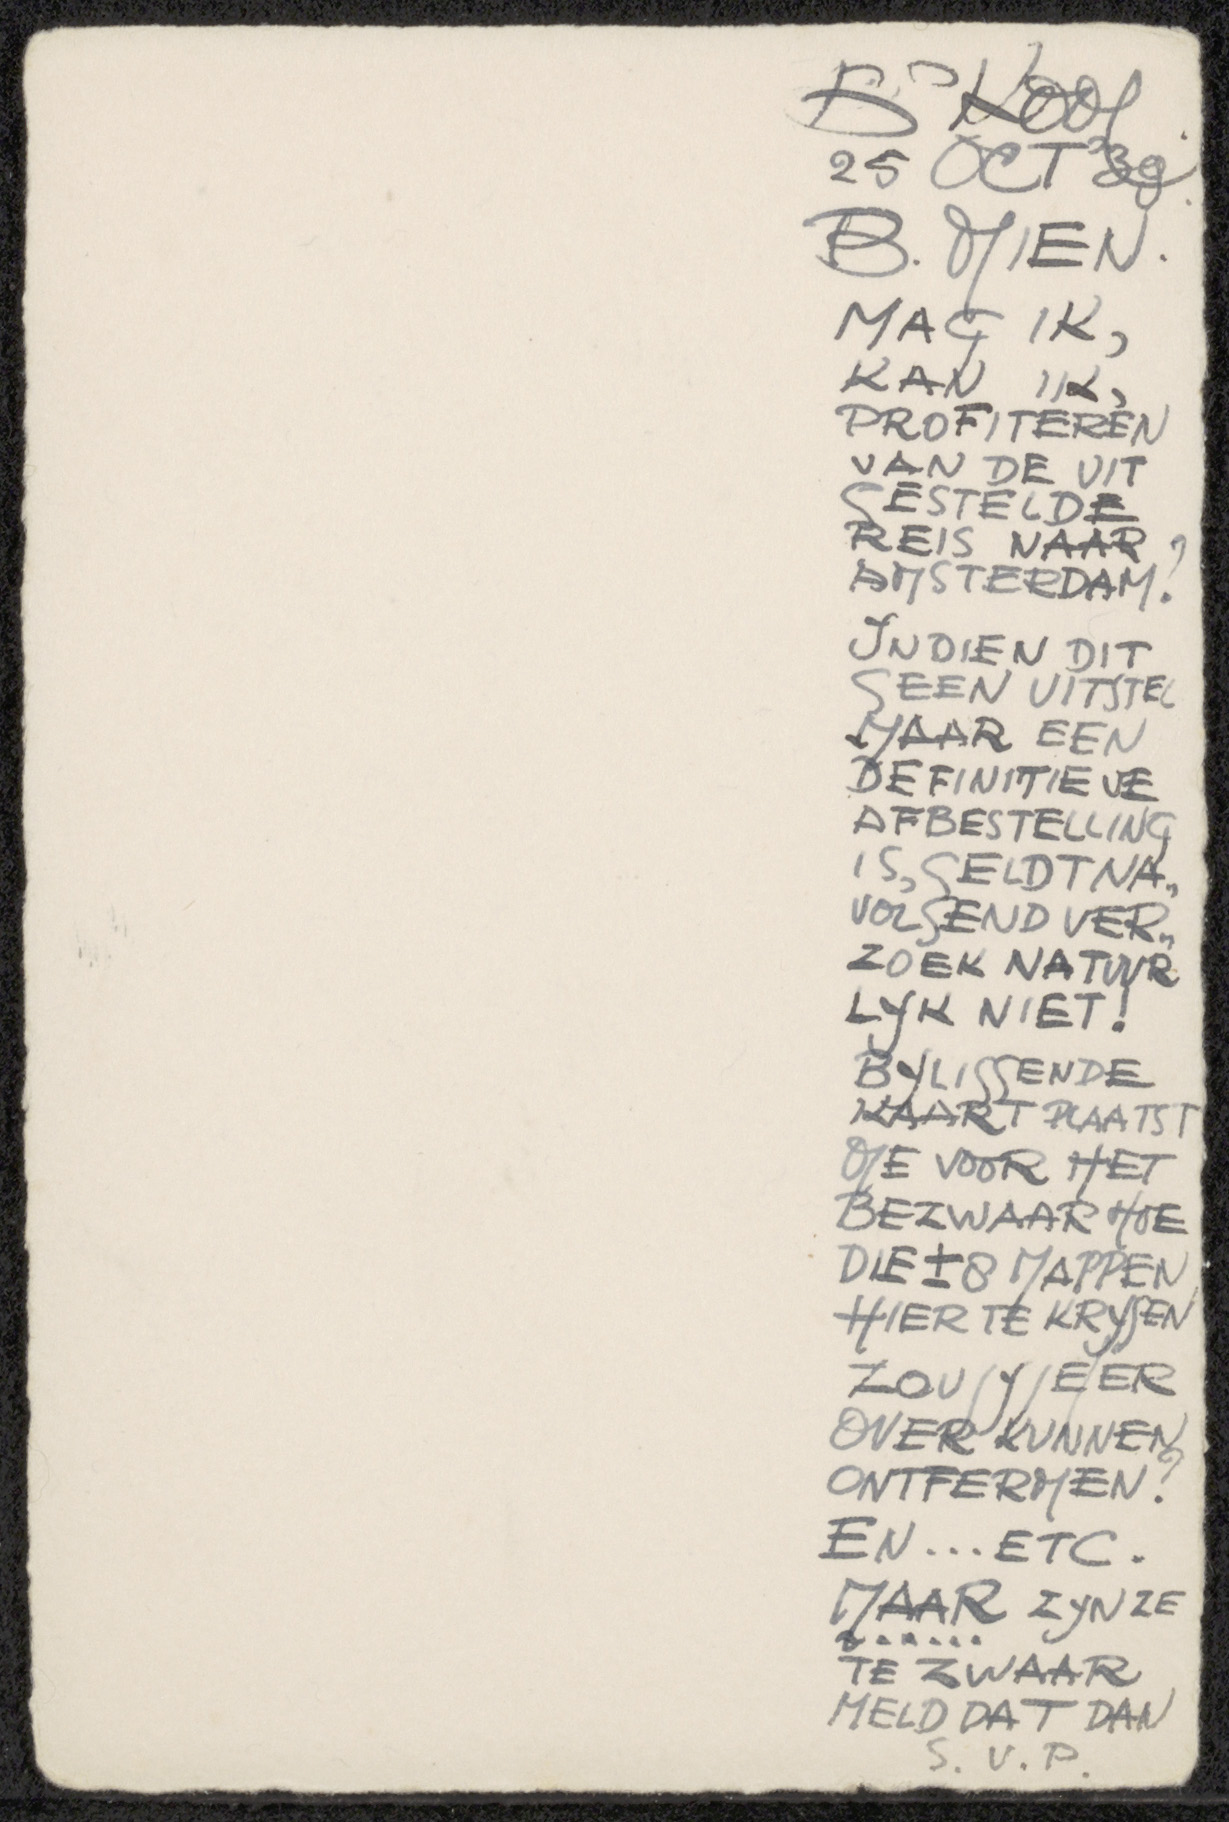 B<sup>D</sup> KOOL.
25 OCT '39.
B. MIEN.
MAG IK,
KAN IK,
PROFITEREN
VAN DE UIT
GESTELDE
REIS NAAR
AMSTERDAM?
INDIEN DIT
GEEN UITSTEL
MAAR EEN
DEFINITIEVE
AFBESTELLING
IS, GELDT NA„
VOLGEND VER„
ZOEK NATUUR
LYK NIET!
BYLIGGENDE
KAART PLAATST
ME VOOR HET
BEZWAAR HOE
DIE ± 8 MAPPEN
HIER TE KRYGEN
ZOU JY JE ER
OVER KUNNEN
ONTFERMEN?
EN... ETC.
MAAR ZYN ZE
TE ZWAAR
MELD DAT DAN
S.V.P.